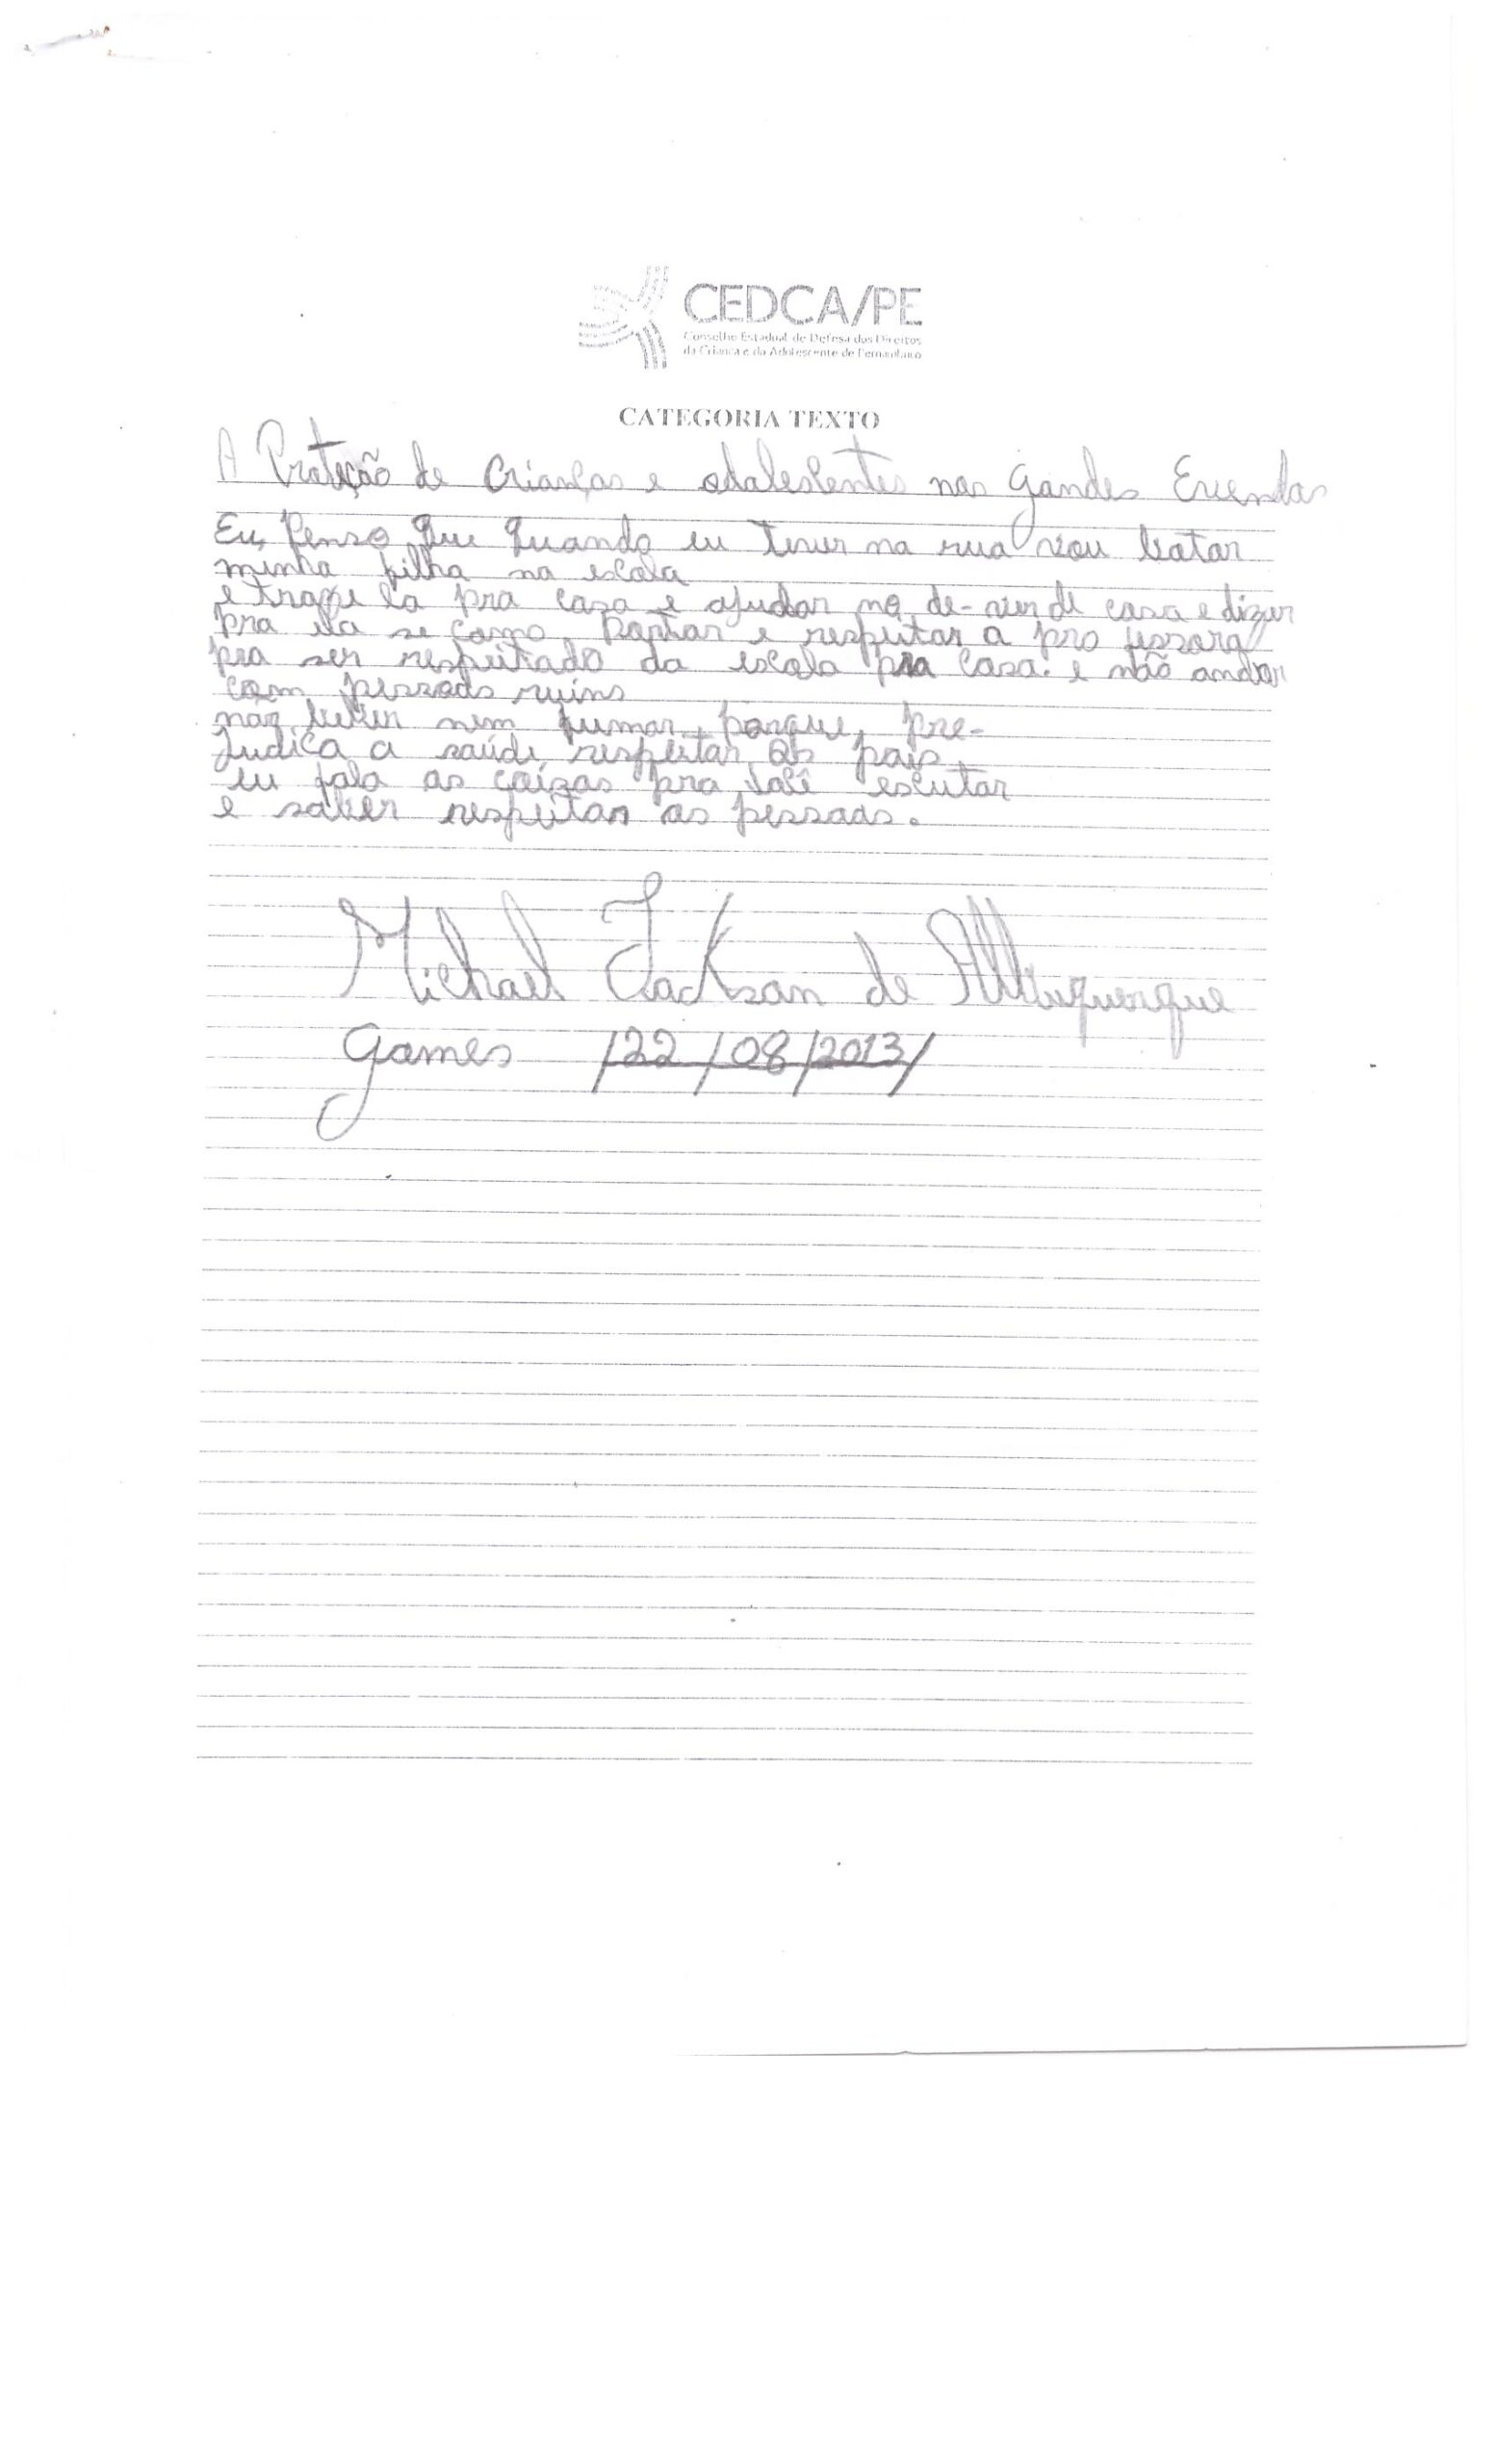 CEDCA/PE
Conselho Estadual de Defesa dos Direitos
da Criança e do Adolescente de Pernambuco
CATEGORIA TEXTO
A Proteção de Crianças e adolescentes nos gandes Evendos
Eu Penso Que Quando eu tiver na rua vou botar
minha filha na escola
e traze la pra casa e ajudar no de-ver de casa e dizer
pra ela se comportar e respeitar a pro fessora
pra ser respeitado da escola pra casa. e não andar
com pessoas ruins
não beber nem fumar porque, pre-
judica a saúde, respeitar os pais
eu falo as coizas pra você escutar
e saber respeitar as pessoas.
Michael Jackson de Albuquerque
Games /22/08/2013/